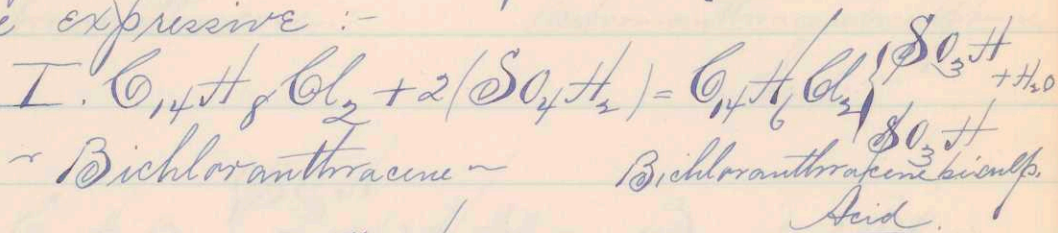 expressive :-
I. C14H8Cl2 + 2(SO4H2) = C14H6Cl2 { SO3H SO3H + H2O
~ Bichloranthracene ~ Bichloranthracene bisulp.
Acid.